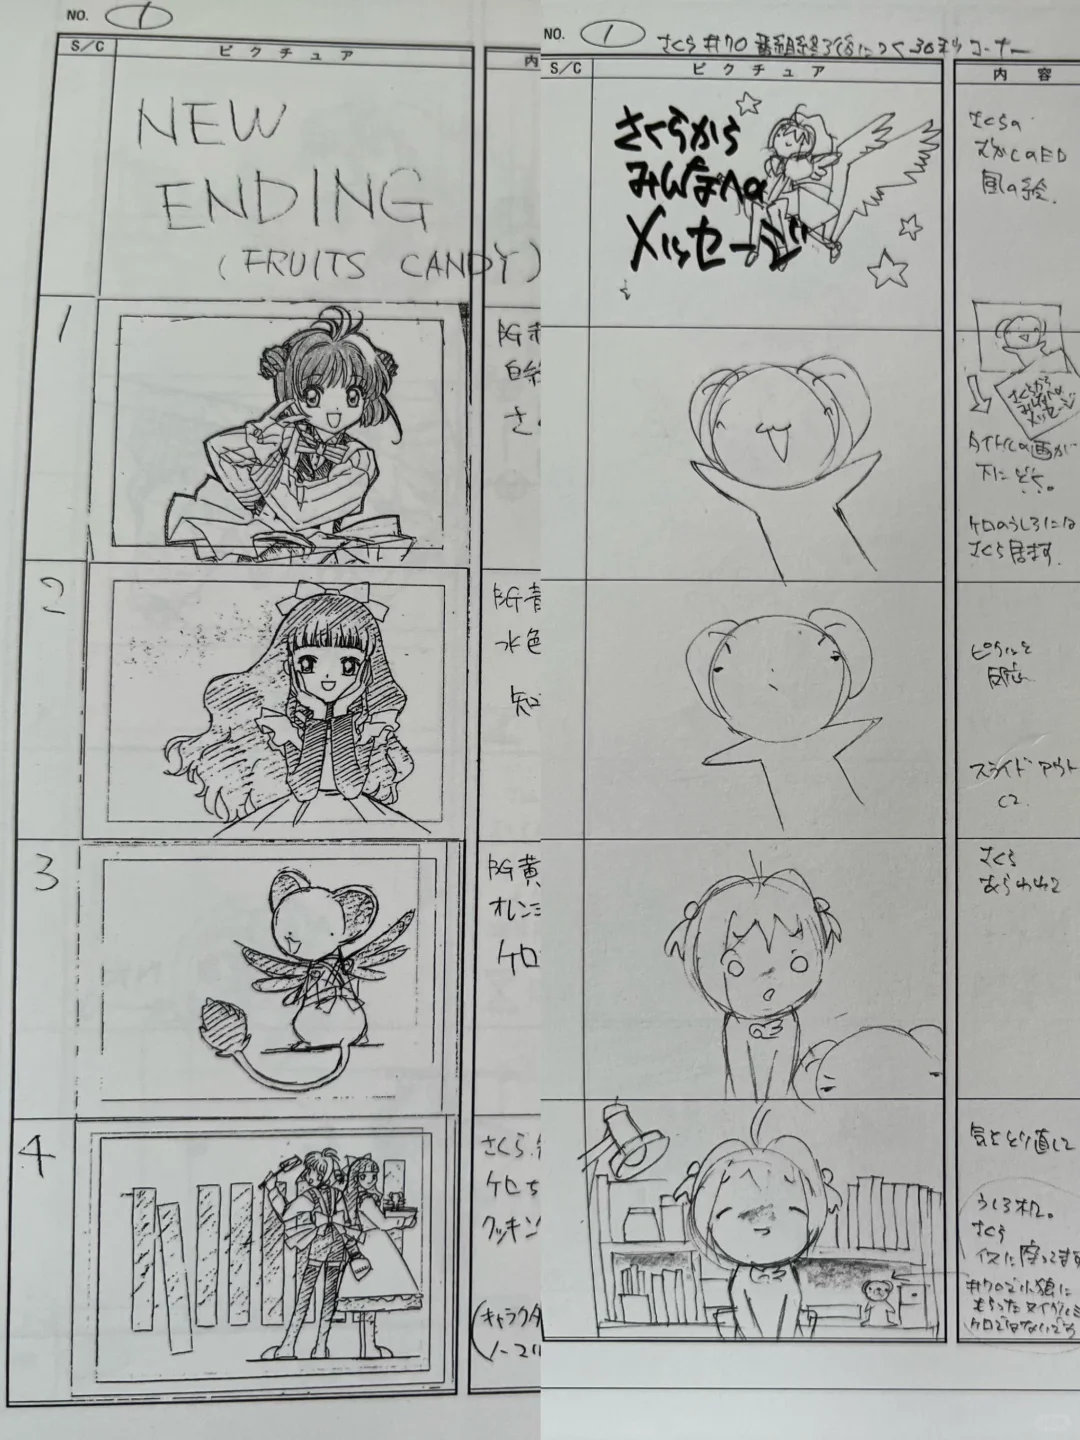 NO. 1
S/C ピクチュア 内
NEW
ENDING
(FRUITS CANDY)
1
BG
さ
2
BG青
水色
知
3
BG黄
オレン
ケロ
4
さくら
ケロち
クッキン
(キャラクタ
ノーマル
NO. 1 さくら#70 番組終了後につく30秒コーナー
S/C ピクチュア 内容
さくらから
みんなへの
メッセージ
さくらの
むかしのED
風の絵.
さくらから
みんなへの
メッセージ
タイトルの画が
下に
ケロのうしろには
さくら居ます.
反応
スライドアウト
さくら
あらわれる
気をとり直して
うしろ机。
さくら
イスに座ってます
#70で小狼に
もらったヌイグルミ
ケロではないです